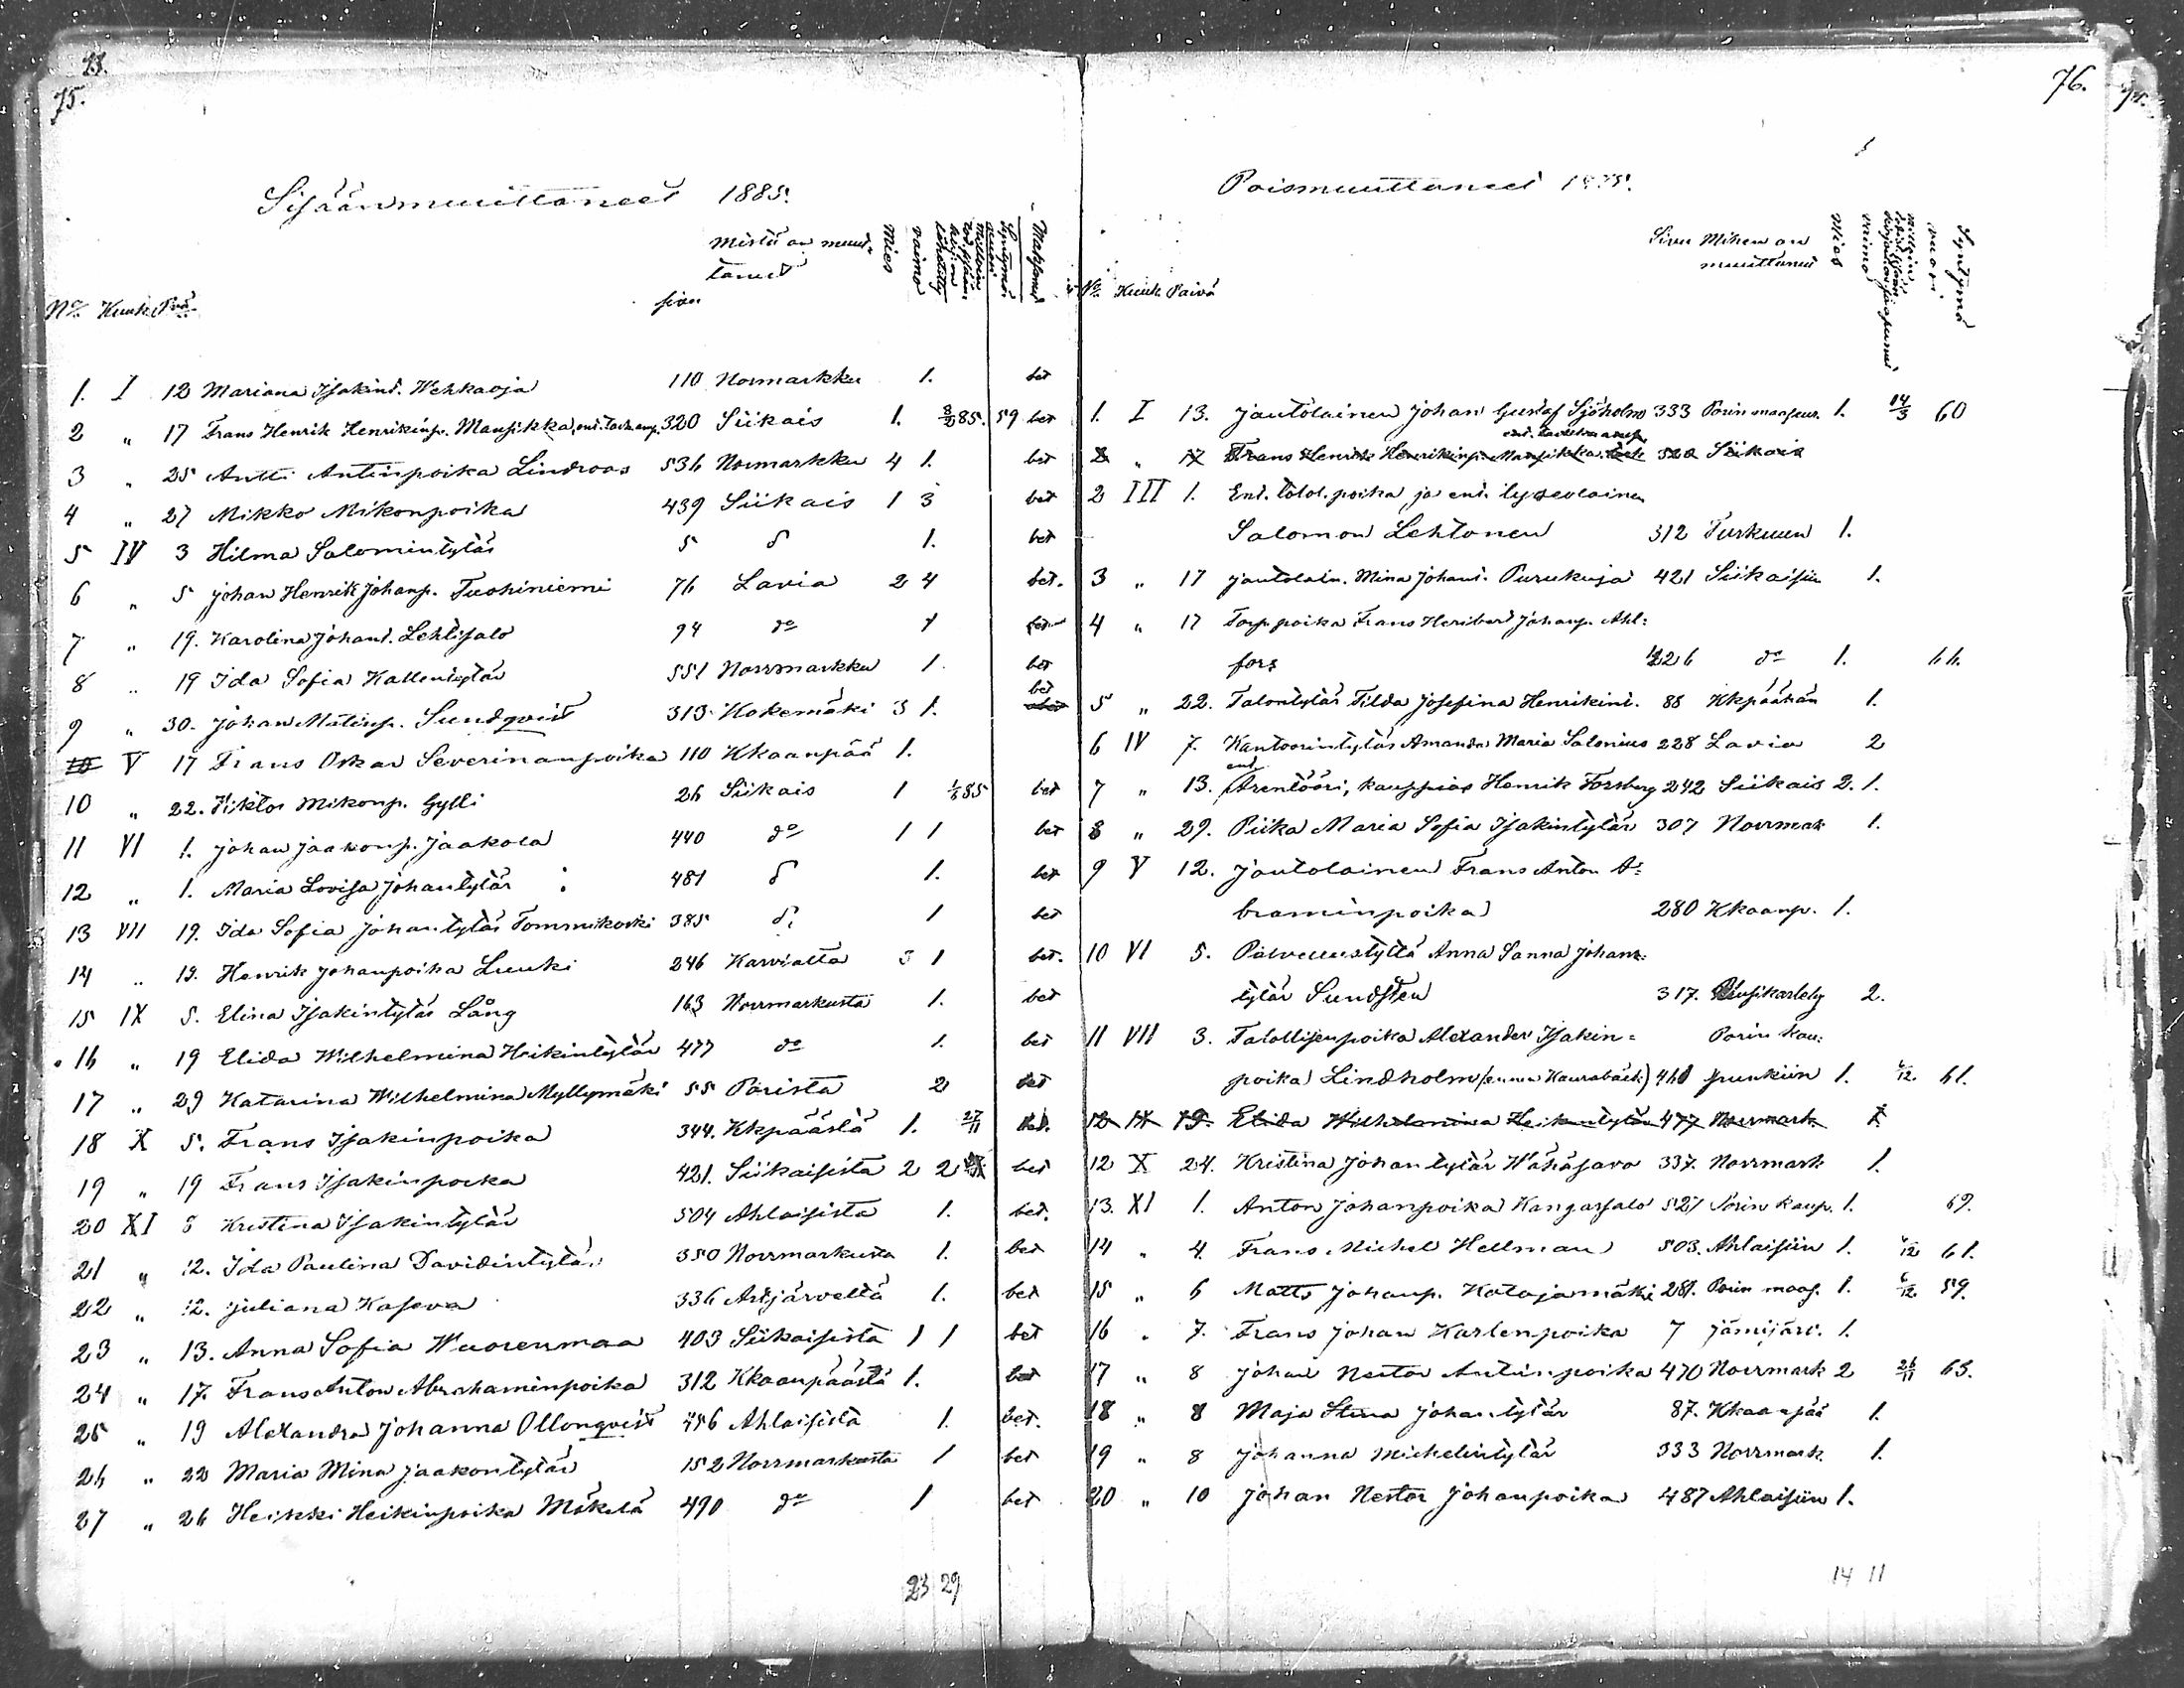 75.
Sisäänmuuttaneet 1885.
No Kuuk. Pvä sivu Mistä on muuttanut Mies vaimo Syntymä vuosi Maksanut
1. I 12 Mariana Isakint. Wehkaoja 110 Normarkku 1. bet
2 " 17 Frans Henrik Henrikinp. Mansikka, ent. 320 Siikais 1. 8/2 85. 59 bet
3 " 25 Antti Antinpoika Lindroos 536 Normarkku 4 1. bet
4 " 27 Mikko Mikonpoika 439 Siikais 1 3 bet
5 IV 3 Hilma Salomintytär 5 d 1. bet
6 " 5 Johan Henrik Johanp. Tuohiniemi 76 Lavia 2 4 bet.
7 " 19. Karolina Johant. Lehtisalo 94 do 1 bet
8 " 19 Ida Sofia Kallentytär 551 Norrmarkku 1. bet
9 " 30. Johan Matinp. Sundqvist 313 Kokemäki 3 1. bet
10 V 17 Frans Oskar Severinanpoika 110 Kkaanpää 1.
10 " 22. Viktor Mikonp. Gylli 26 Siikais 1 1/6 85 bet
11 VI 1. Johan Jaakonp. Jaakola 440 do 1 1 bet
12 " 1. Maria Lovisa Johantytär 481 d 1. bet
13 VII 19. Ida Sofia Johantytär Tommikoski 385 d. 1 bet
14 " 19. Henrik Johanpoika Luuki 246 Karvialta 3 1 bet.
15 IX 5. Elina Isakintytär Lång 163 Norrmarkusta 1. bet
16 " 19 Elida Wilhelmina Heikintytär 477 do 1. bet
17 " 29 Katarina Wilhelmina Myllymäki 55 Porista 2 bet
18 X 5. Frans Isakinpoika 344. Kkpäästä 1. 27/11 bet.
19 " 19 Frans Isakinpoika 421. Siikaisista 2 2 bet
20 XI 8 Kristina Isakintytär 504 Ahlaisista 1. bet.
21 " 12. Ida Paulina Davidintytär 350 Norrmarkusta 1. bet
22 " 12. Juliana Kasova 336 Artjärveltä 1. bet
23 " 13. Anna Sofia Wuorenmaa 403 Siikaisista 1 1 bet
24 " 17. Frans Anton Abrahaminpoika 312 Kkaanpäästä 1. bet
25 " 19 Alexandra Johanna Ollonqvist 456 Ahlaisista 1. bet.
26 " 22 Maria Mina Jaakontytär 152 Norrmarkusta 1 bet
27 " 26 Heikki Heikinpoika Mäkelä 490 do 1 bet
23 29
76.
Poismuuttaneet 1885.
No Kuuk Päivä Sivu Mihen on muuttanut Mies vaimo Syntymä vuosi
1. I 13. Jautolainen Johan Gustaf Sjöholm 333 Porin maaseur. 1. 14/3 60
2 " 17 Frans Henrik Henrikinp. Mansikka 320 Siikais
2 III 1. Ent. talol. poika ja ent. lyseolainen
Salomon Lehtonen 312 Turkuun 1.
3 " 17 Jautolain. Mina Johant. Purukuja 421 Siikaisiin 1.
4 " 17 Torp. poika Frans Heribert Johanp. Ahl=
fors 226 do 1. 66.
5 " 22. Talontytär Tilda Josefina Henrikint. 88 Kkpäähän 1.
6 IV 7. Kantoorintytär Amanda Maria Salonius 228 Lavia 2
7 " 13. ent. Arentööri, kauppias Henrik Forsberg 242 Siikais 2. 1.
8 " 29. Piika Maria Sofia Isakintytär 307 Norrmark 1.
9 V 12. Jautolainen Frans Anton A=
braminpoika 280 Kkaanp. 1.
10 VI 5. Palvelustyttö Anna Sanna Johan=
tytär Sundsten 317. 2.
11 VII 3. Talollisenpoika Alexander Isakin= Porin kau=
poika Lindholm (ennen Kaurabäck) 461 punkiin 1. 6/12. 61.
12 IX 19. Elida Wilhelmina Heikintytär 477 Norrmark 1
12 X 24. Kristina Johantytär Wähäsavo 337. Norrmark 1.
13. XI 1. Anton Johanpoika Kangassalo 527 Porin kaup. 1. 69.
14 " 4. Frans Michel Hellman 503. Ahlaisiin 1. 6/12 61.
15 " 6 Matts Johanp. Katajamäki 281. Porin maas. 1. 6/12 59.
16 " 7. Frans Johan Karlenpoika 7 Jämijärv. 1.
17 " 8 Johan Nestor Antinpoika 470 Norrmark 2 26/11 63.
18 " 8 Maja Stina Johantytär 87. Kkaanpää 1.
19 " 8 Johanna Michelintytär 333 Norrmark. 1.
20 " 10 Johan Nestor Johanpoika 487 Ahlaisiin 1.
14 11